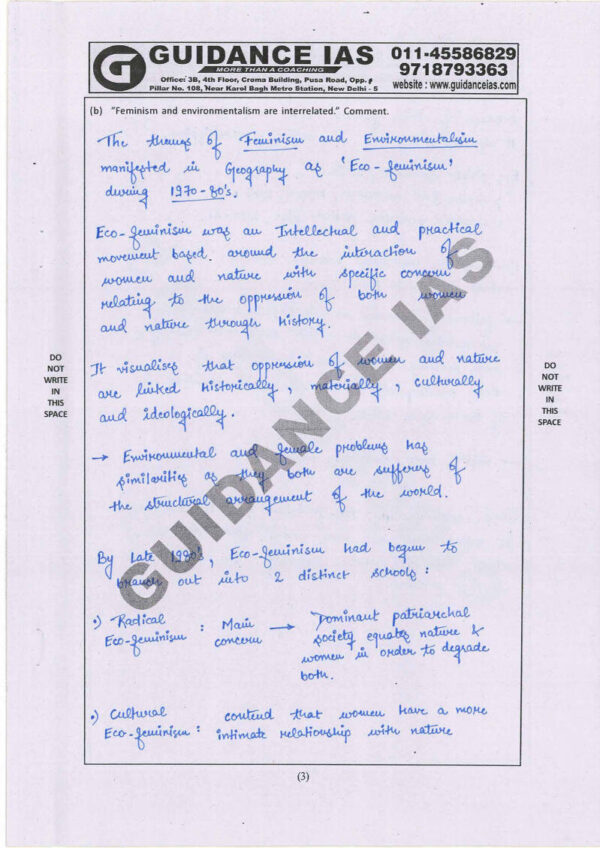 G
GUIDANCE IAS
MORE THAN A COACHING
Office: 3B, 4th Floor, Croma Building, Pusa Road, Opp.
Pillar No. 108, Near Karol Bagh Metro Station, New Delhi - 5
011-45586829
9718793363
website : www.guidanceias.com
(b) "Feminism and environmentalism are interrelated." Comment.
The themes of Feminism and Environmentalism
manifested in Geography as 'Eco-feminism'
during 1970-80's.
Eco-feminism was an Intellectual and practical
movement based around the interaction of
women and nature with specific concern
relating to the oppression of both women
and nature through history.
It visualises that oppression of women and nature
are linked historically, materially, culturally
and ideologically.
→ Environmental and female problems has
similarities as they both are of
the structural arrangement of the world.
By Late, Eco-feminism had begun to
branch out into 2 distinct schools :
•) Radical
Eco-feminism : Main concern → Dominant patriarchal
society equates nature &
women in order to degrade
both.
•) Cultural
Eco-feminism : contend that women have a more
intimate relationship with nature
DO
NOT
WRITE
IN
THIS
SPACE
DO
NOT
WRITE
IN
THIS
SPACE
GUIDANCE IAS
(3)